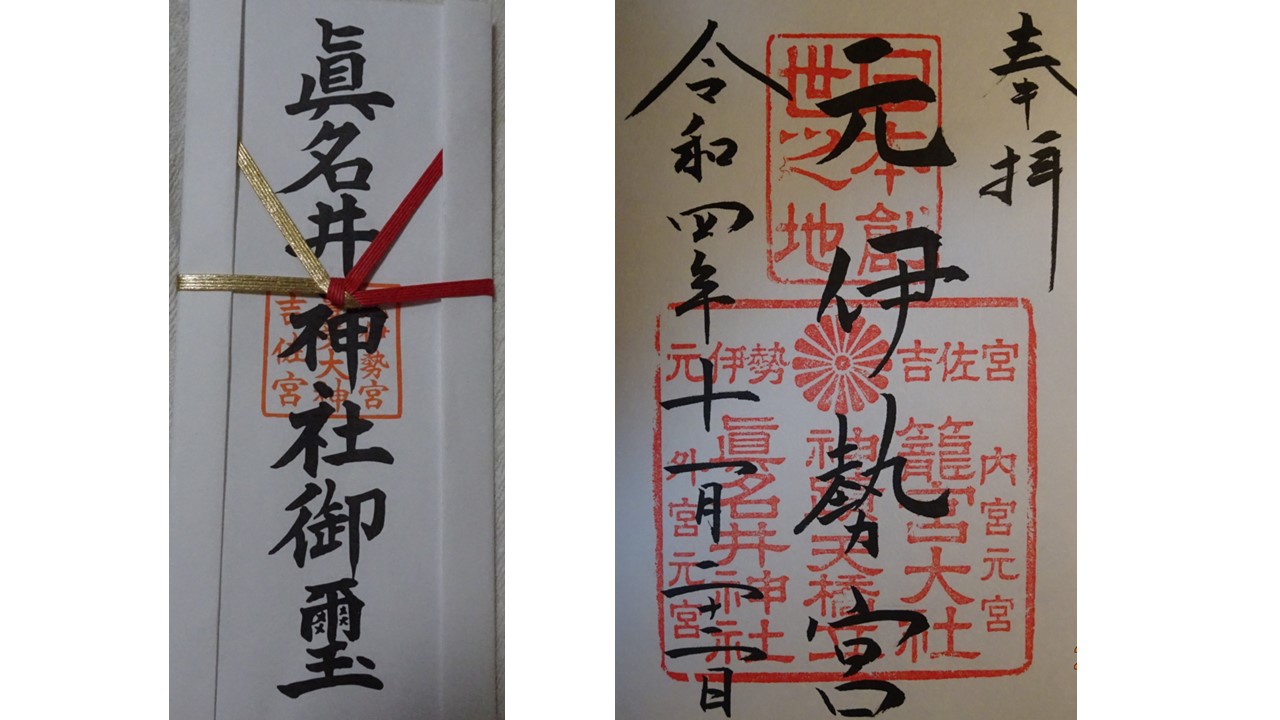 眞名井神社御璽
勢宮
大神
吉佐宮
奉拝
元伊勢宮
令和四年十一月二十二日
日本創
世之地
元伊勢 吉佐宮
内宮元宮
籠宮大社
神蹟天橋立
眞名井神社
外宮元宮